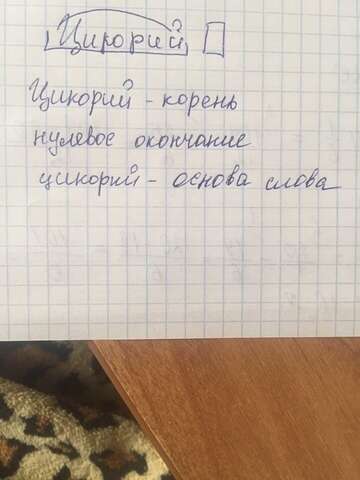 Цикорий
Цикорий - корень
нулевое окончание
цикорий - основа слова